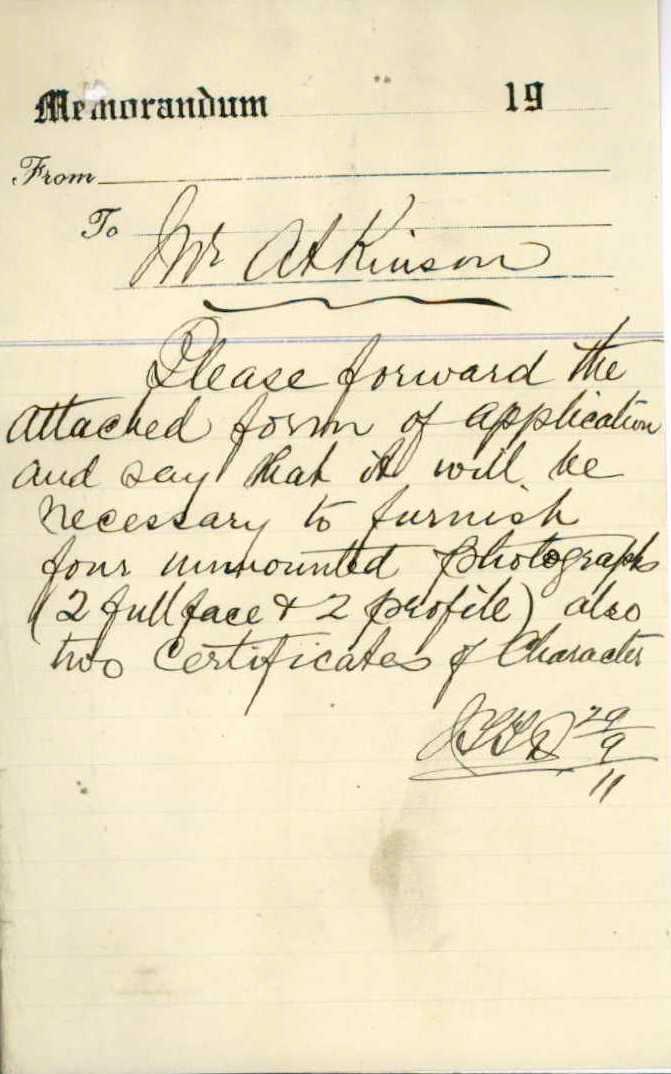 Memorandum 19
From
To
Mr Atkinson
Please forward the
attached form of application
and say that it will be
necessary to furnish
four unmounted photographs
(2 full face & 2 profile) also
two Certificates of Character
29
9
11